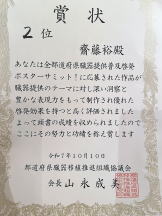 賞状
2位
齋藤裕殿
あなたは全都道府県臓器提供普及啓発
ポスターサミットⅠに応募された作品が
臓器提供のテーマに対し深い洞察と
豊かな表現力をもって制作され優れた
啓発効果を持つと高く評価されました
よって頭書の成績を収められましたので
ここにその努力と功績を称え賞します
令和7年10月10日
都道府県臓器移植推進組織協議会
会長 山永成美